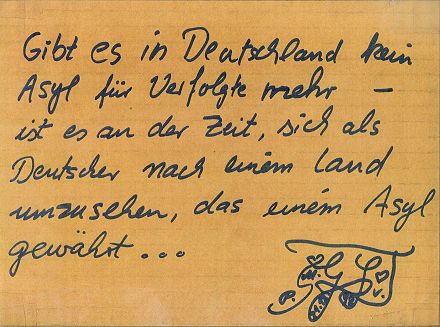 Gibt es in Deutschland kein
Asyl für Verfolgte mehr –
ist es an der Zeit, sich als
Deutscher nach einem Land
umzusehen, das einem Asyl
gewährt...